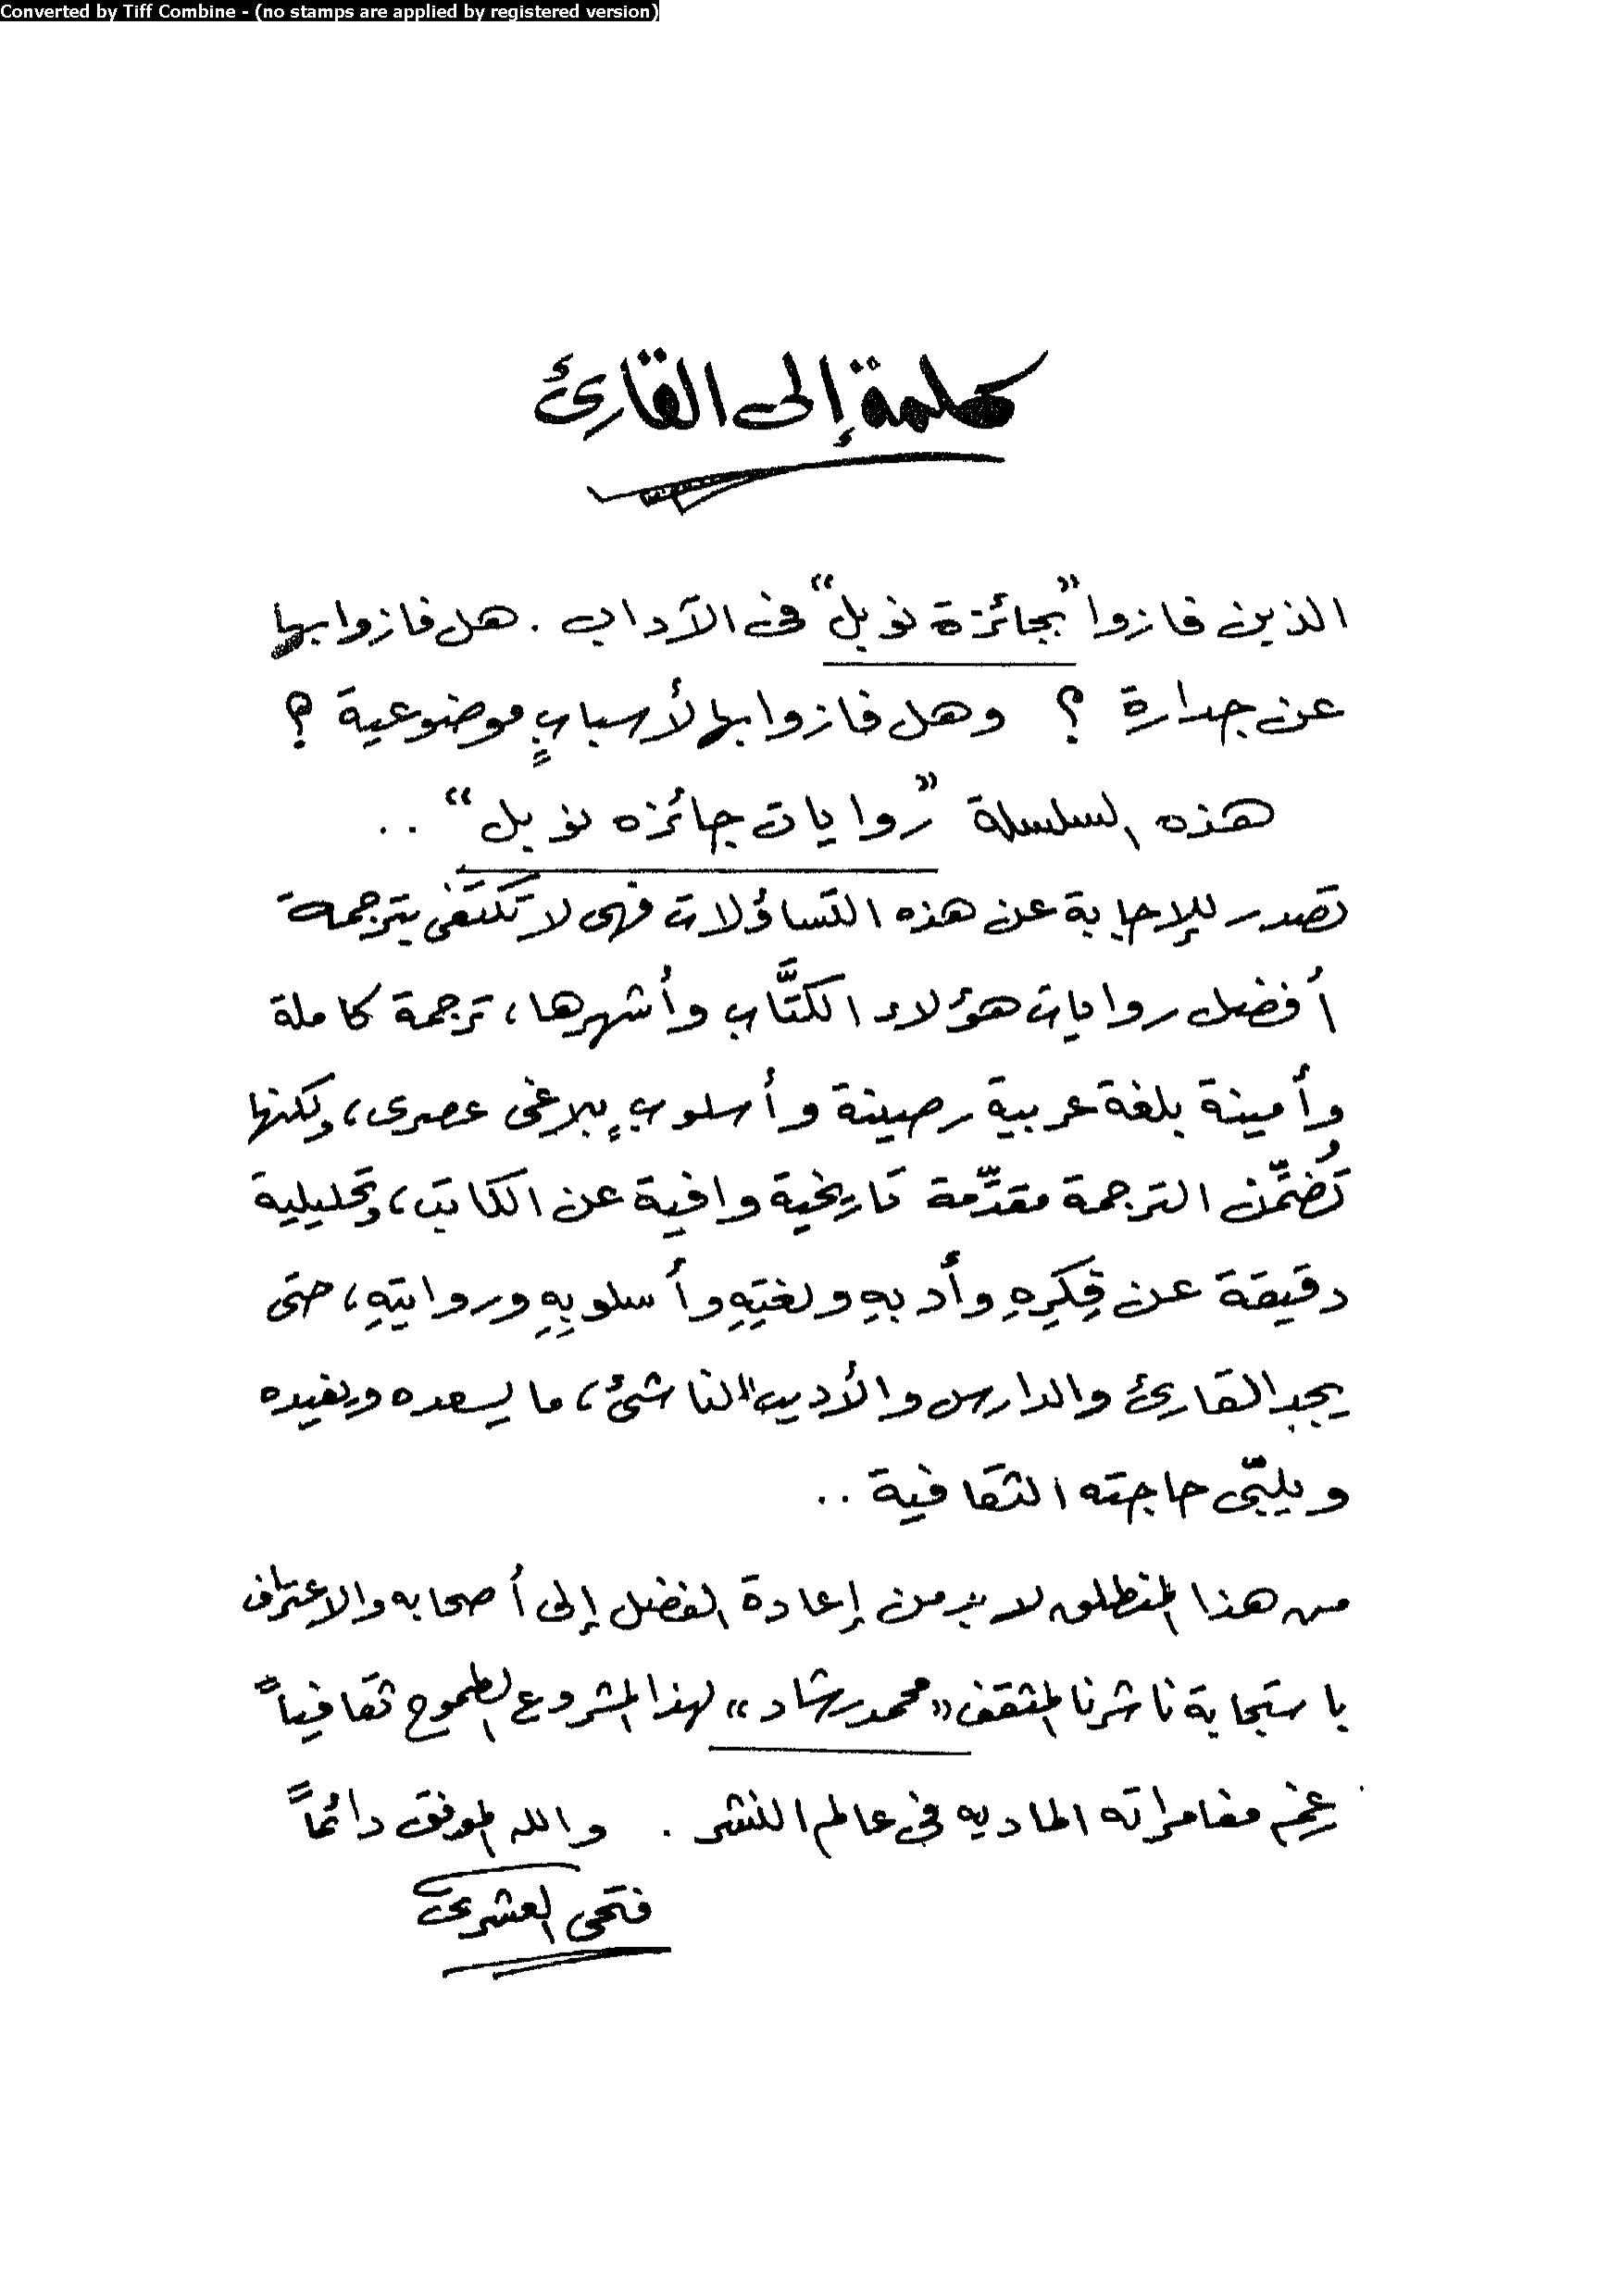 Converted by Tiff Combine - (no stamps are applied by registered version)
كلمة إلى القارئ
الذين فازوا "بجائزة نوبل" فى الآداب . هل فازوا بها
عن جدارة ؟ وهل فازوا بها لأسبابٍ موضوعية ؟
هذه السلسلة "روايات جائزه نوبل" ..
تصدر للإجابة عن هذه التساؤلات فهى لا تكتفى بترجمة
أفضل روايات هؤلاء الكتَّاب وأشهرها، ترجمة كاملة
وأمينة بلغة عربية رصينة وأسلوبٍ بلاغى عصرى، ولكنها
تُضمِّن الترجمة مقدِّمة تاريخية وافية عن الكاتب، وتحليلية
دقيقة عن فِكَرِهِ وأدبهِ ولغتِهِ وأسلوبِهِ وروايتِهِ، حتى
يجد القارئ والدارس والأديب الناشئ، ما يسعده ويفيده
ويلبّى حاجته الثقافية ..
من هذا المنطلق لا بد من إعادة الفضل إلى أصحابه والاعتراف
باستجابة ناشرنا المثقف «محمد رشاد» لهذا المشروع الطموح ثقافياً
مغامراته الماديه فى عالم النشر . والله الموفق دائماً
فتحى العشرى